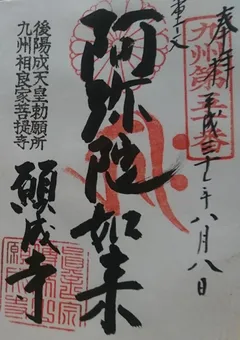 奉拝 平成 年八月八日
重文
阿弥陀如来
後陽成天皇勅願所
九州相良家菩提寺
願成寺